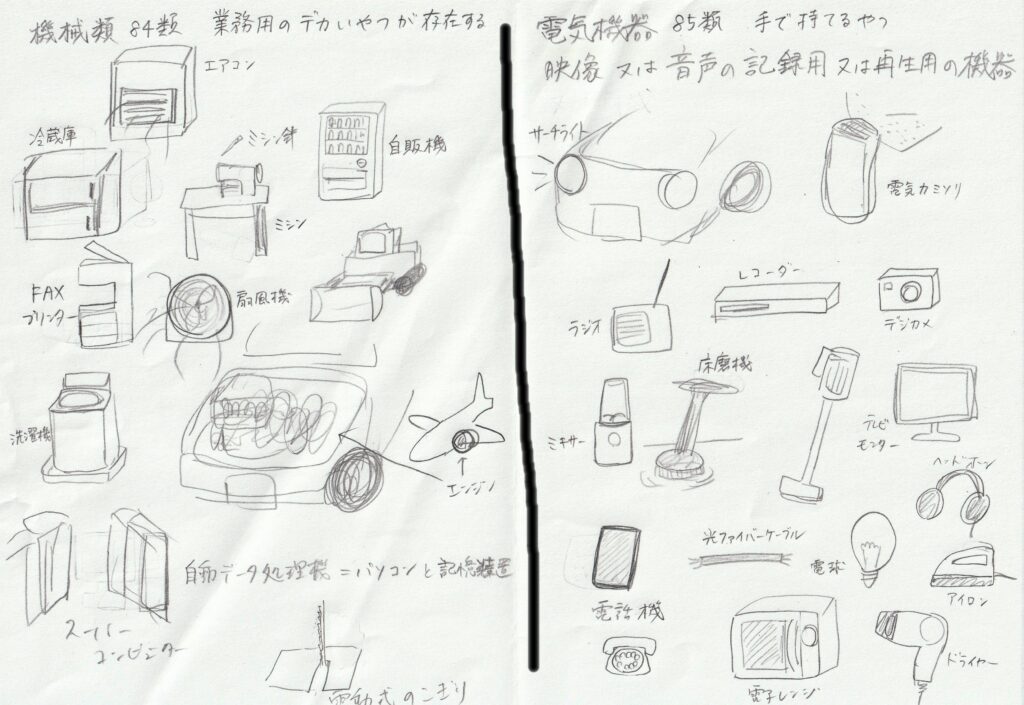 機械類 84類 業務用のデカいやつが存在する
エアコン
冷蔵庫
ミシン針
自販機
ミシン
FAX
プリンター
扇風機
洗濯機
エンジン
自動データ処理機=パソコンと記憶装置
スーパー
コンピューター
電動式のこぎり
電気機器 85類 手で持てるやつ
映像又は音声の記録用又は再生用の機器
サーチライト
電気カミソリ
ラジオ
レコーダー
デジカメ
床磨機
ミキサー
テレビ
モニター
ヘッドホーン
光ファイバーケーブル
電球
アイロン
電話機
電子レンジ
ドライヤー